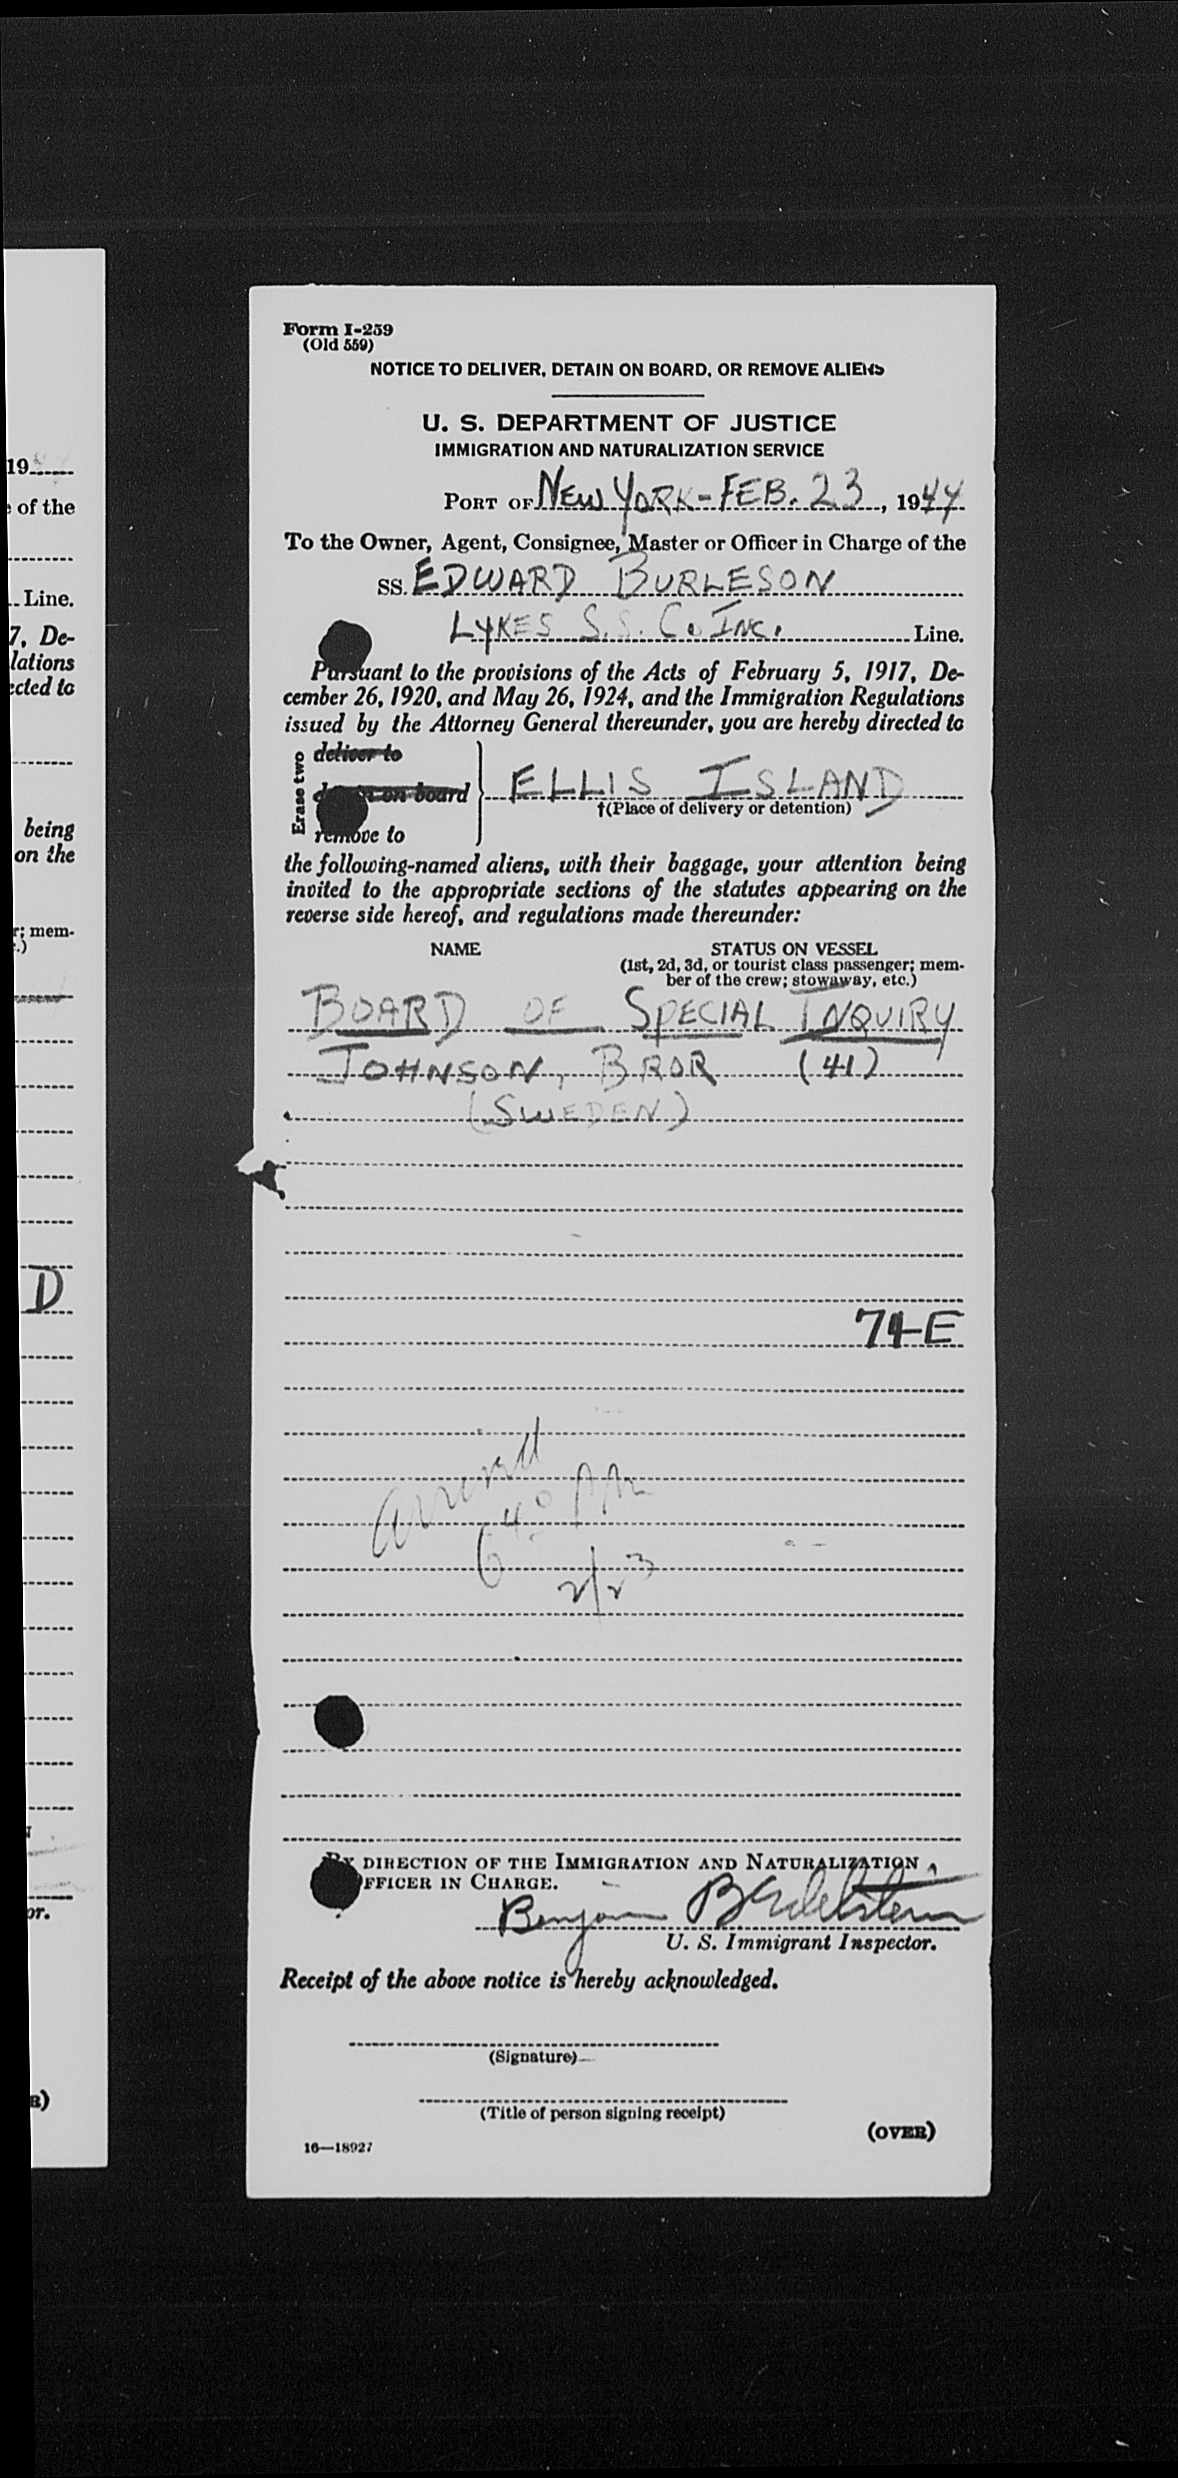 19
of the
Line.
7, De-
lations
ected to
being
on the
r; mem-
.)
D
or.
R)
Form I-259
(Old 559)
NOTICE TO DELIVER, DETAIN ON BOARD, OR REMOVE ALIENS
U. S. DEPARTMENT OF JUSTICE
IMMIGRATION AND NATURALIZATION SERVICE
PORT OF NEW YORK - FEB. 23, 1944
To the Owner, Agent, Consignee, Master or Officer in Charge of the
SS. EDWARD BURLESON
LYKES S.S. Co. INC. Line.
Pursuant to the provisions of the Acts of February 5, 1917, De-
cember 26, 1920, and May 26, 1924, and the Immigration Regulations
issued by the Attorney General thereunder, you are hereby directed to
Erase two
deliver to
detain on board
remove to
ELLIS ISLAND
†(Place of delivery or detention)
the following-named aliens, with their baggage, your attention being
invited to the appropriate sections of the statutes appearing on the
reverse side hereof, and regulations made thereunder:
NAME STATUS ON VESSEL
(1st, 2d, 3d, or tourist class passenger; mem-
ber of the crew; stowaway, etc.)
BOARD OF SPECIAL INQUIRY
JOHNSON, BROR (41)
(SWEDEN)
74-E
arrived
6 40 PM
2/23
BY DIRECTION OF THE IMMIGRATION AND NATURALIZATION
OFFICER IN CHARGE.
Benjamin B Edelstein
U. S. Immigrant Inspector.
Receipt of the above notice is hereby acknowledged.
(Signature)
(Title of person signing receipt)
16—18927
(OVER)